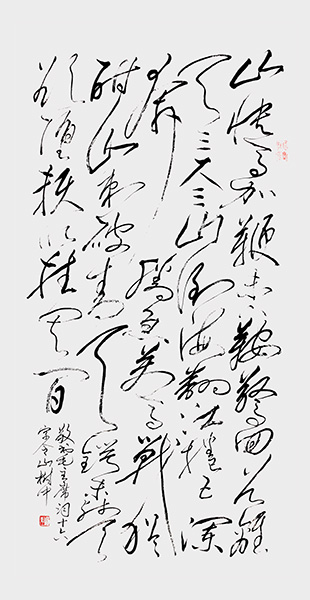 山快马加鞭未下鞍驚回首離
天三尺三山倒海翻江捲巨瀾
奔騰急萬马戰猶
酣山刺破青天锷未残天
欲墮賴以拄其间
敬书毛主席词十六
字令山樹中